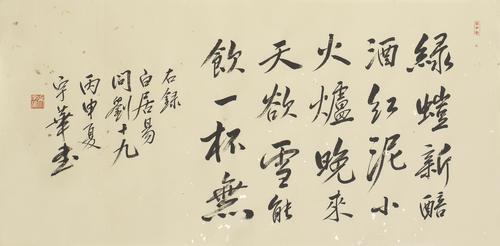 綠螘新醅
酒紅泥小
火爐晚來
天欲雪能
飲一杯無
右錄
白居易
問劉十九
丙申夏
華书